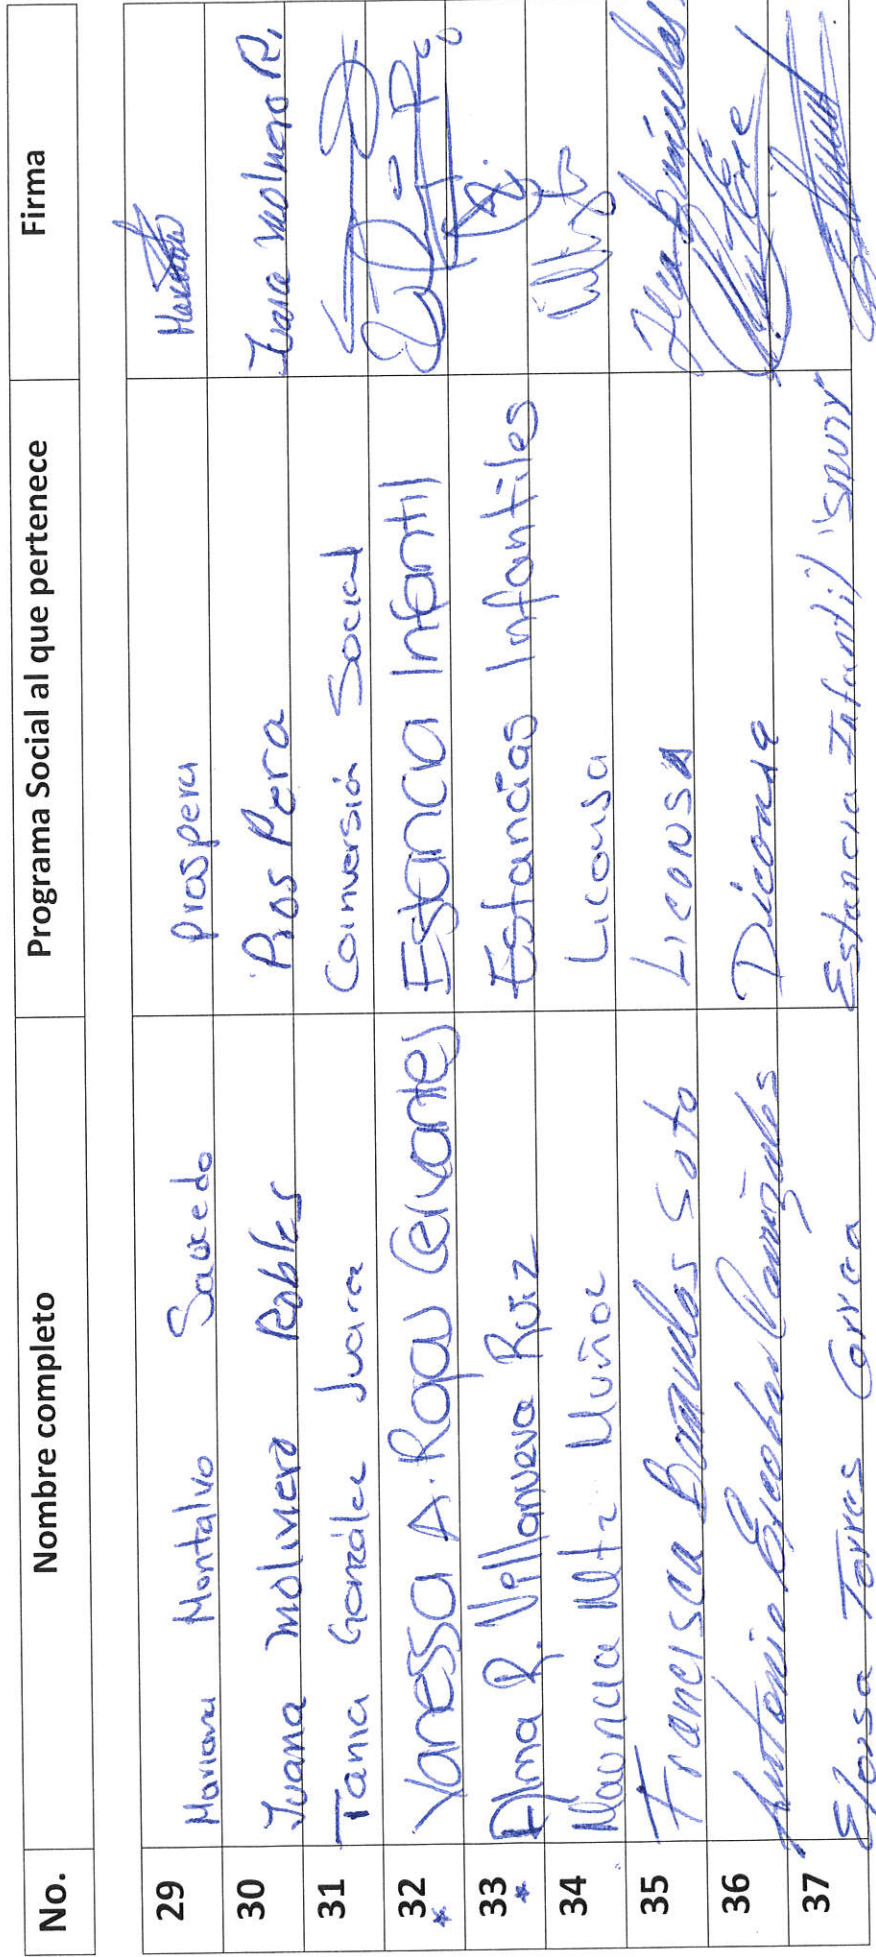 No. Nombre completo Programa Social al que pertenece Firma
29 Mariana Montalvo Saucedo prospera
30 Juana moliviero Robles ProsPera Juana
31 Tania González Juarez Coinversión Social
32 * Yanessa A. Rojas Cervantes Estancia Infantil
33 * Alma R. Villanueva Ruiz Estancias Infantiles
34 Mtz Muñoz Liconsa
35 Francisca Soto LICONSA
36 Antonio Escobar Diconsa
37 Eloisa Torres Correa Estancia Infantil